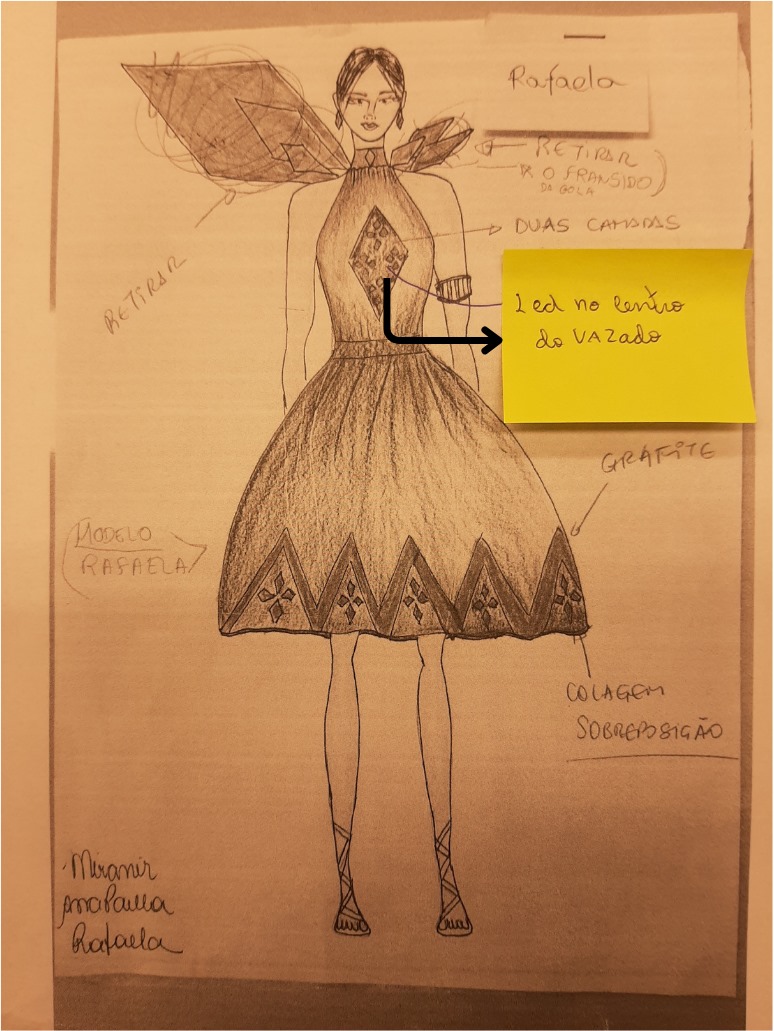 Rafaela
RETIRAR
R O FRANSIDO
DA GOLA
DUAS CAMADAS
Led no centro
do VAZado
RETIRAR
GRAFITE
MODELO
RAFAELA
COLAGEM
SOBREPOSIÇÃO
Miranir
Ana Paula
Rafaela